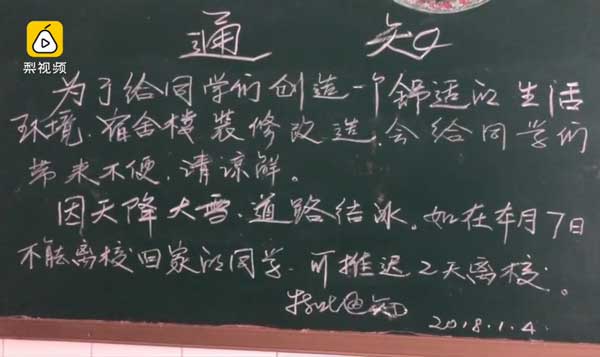 梨视频
通 知
为了给同学们创造一个舒适的生活
环境.宿舍楼装修改造.会给同学们
带来不便.请谅解。
因天降大雪.道路结冰.如在本月7日
不能离校回家的同学.可推迟2天离校。
特此通知
2018.1.4.